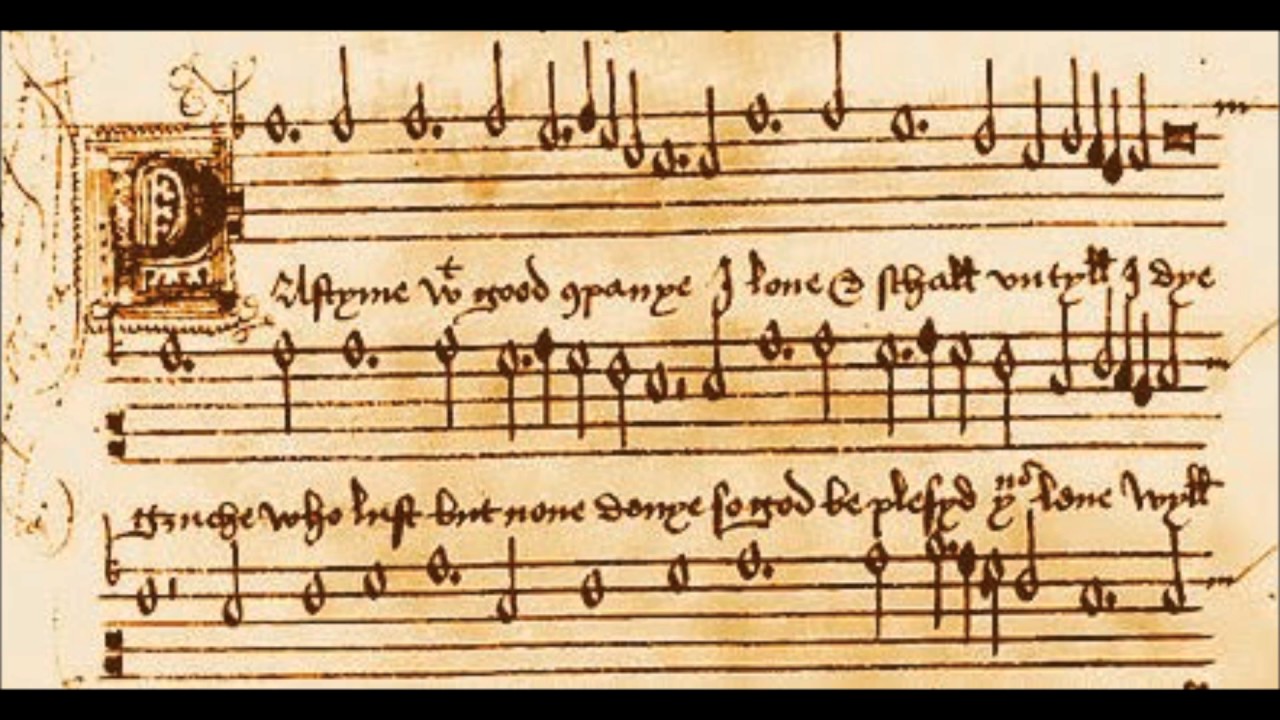 PAstyme wt good 9panye I loue & schall vntyll I dye
gruche who lust but none denye so god be plesyd yus loue wyll